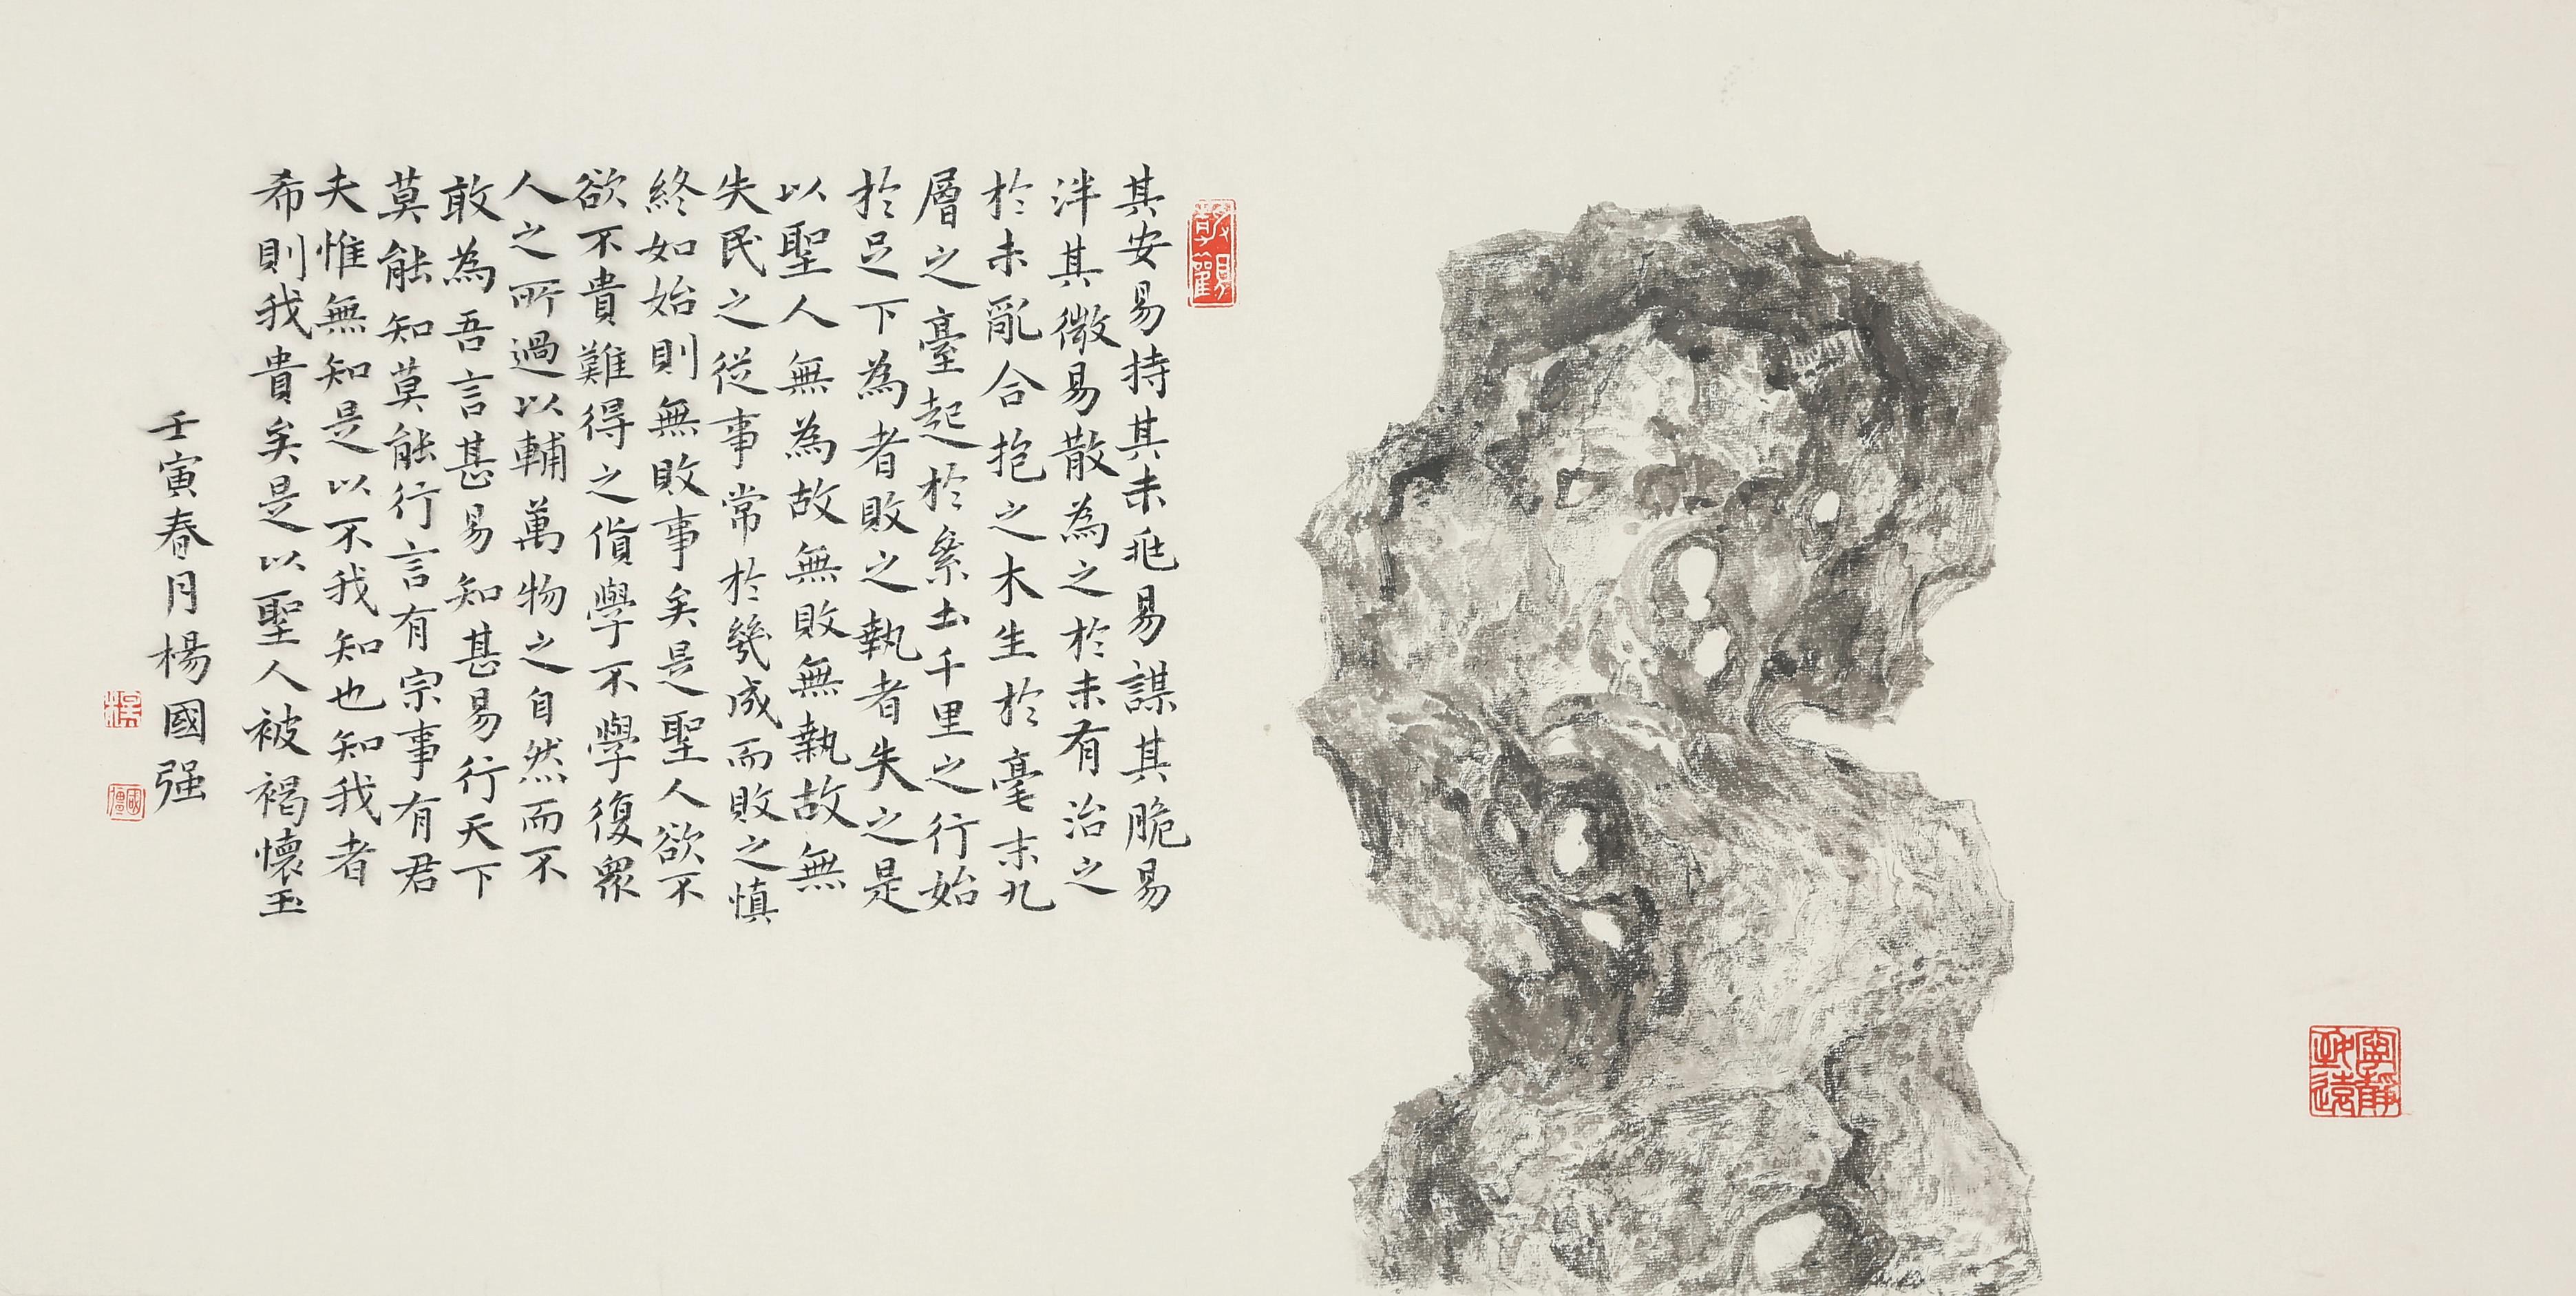 寧靜致遠
其安易持其未兆易謀其脆易
泮其微易散為之於未有治之
於未亂合抱之木生於毫末九
層之臺起於絫土千里之行始
於足下為者敗之執者失之是
以聖人無為故無敗無執故無
失民之從事常於幾成而敗之慎
終如始則無敗事矣是聖人欲不
欲不貴難得之貨學不學復眾
人之所過以輔萬物之自然而不
敢為吾言甚易知甚易行天下
莫能知莫能行言有宗事有君
夫惟無知是以不我知也知我者
希則我貴矣是以聖人被褐懷玉
壬寅春月楊國强
楊